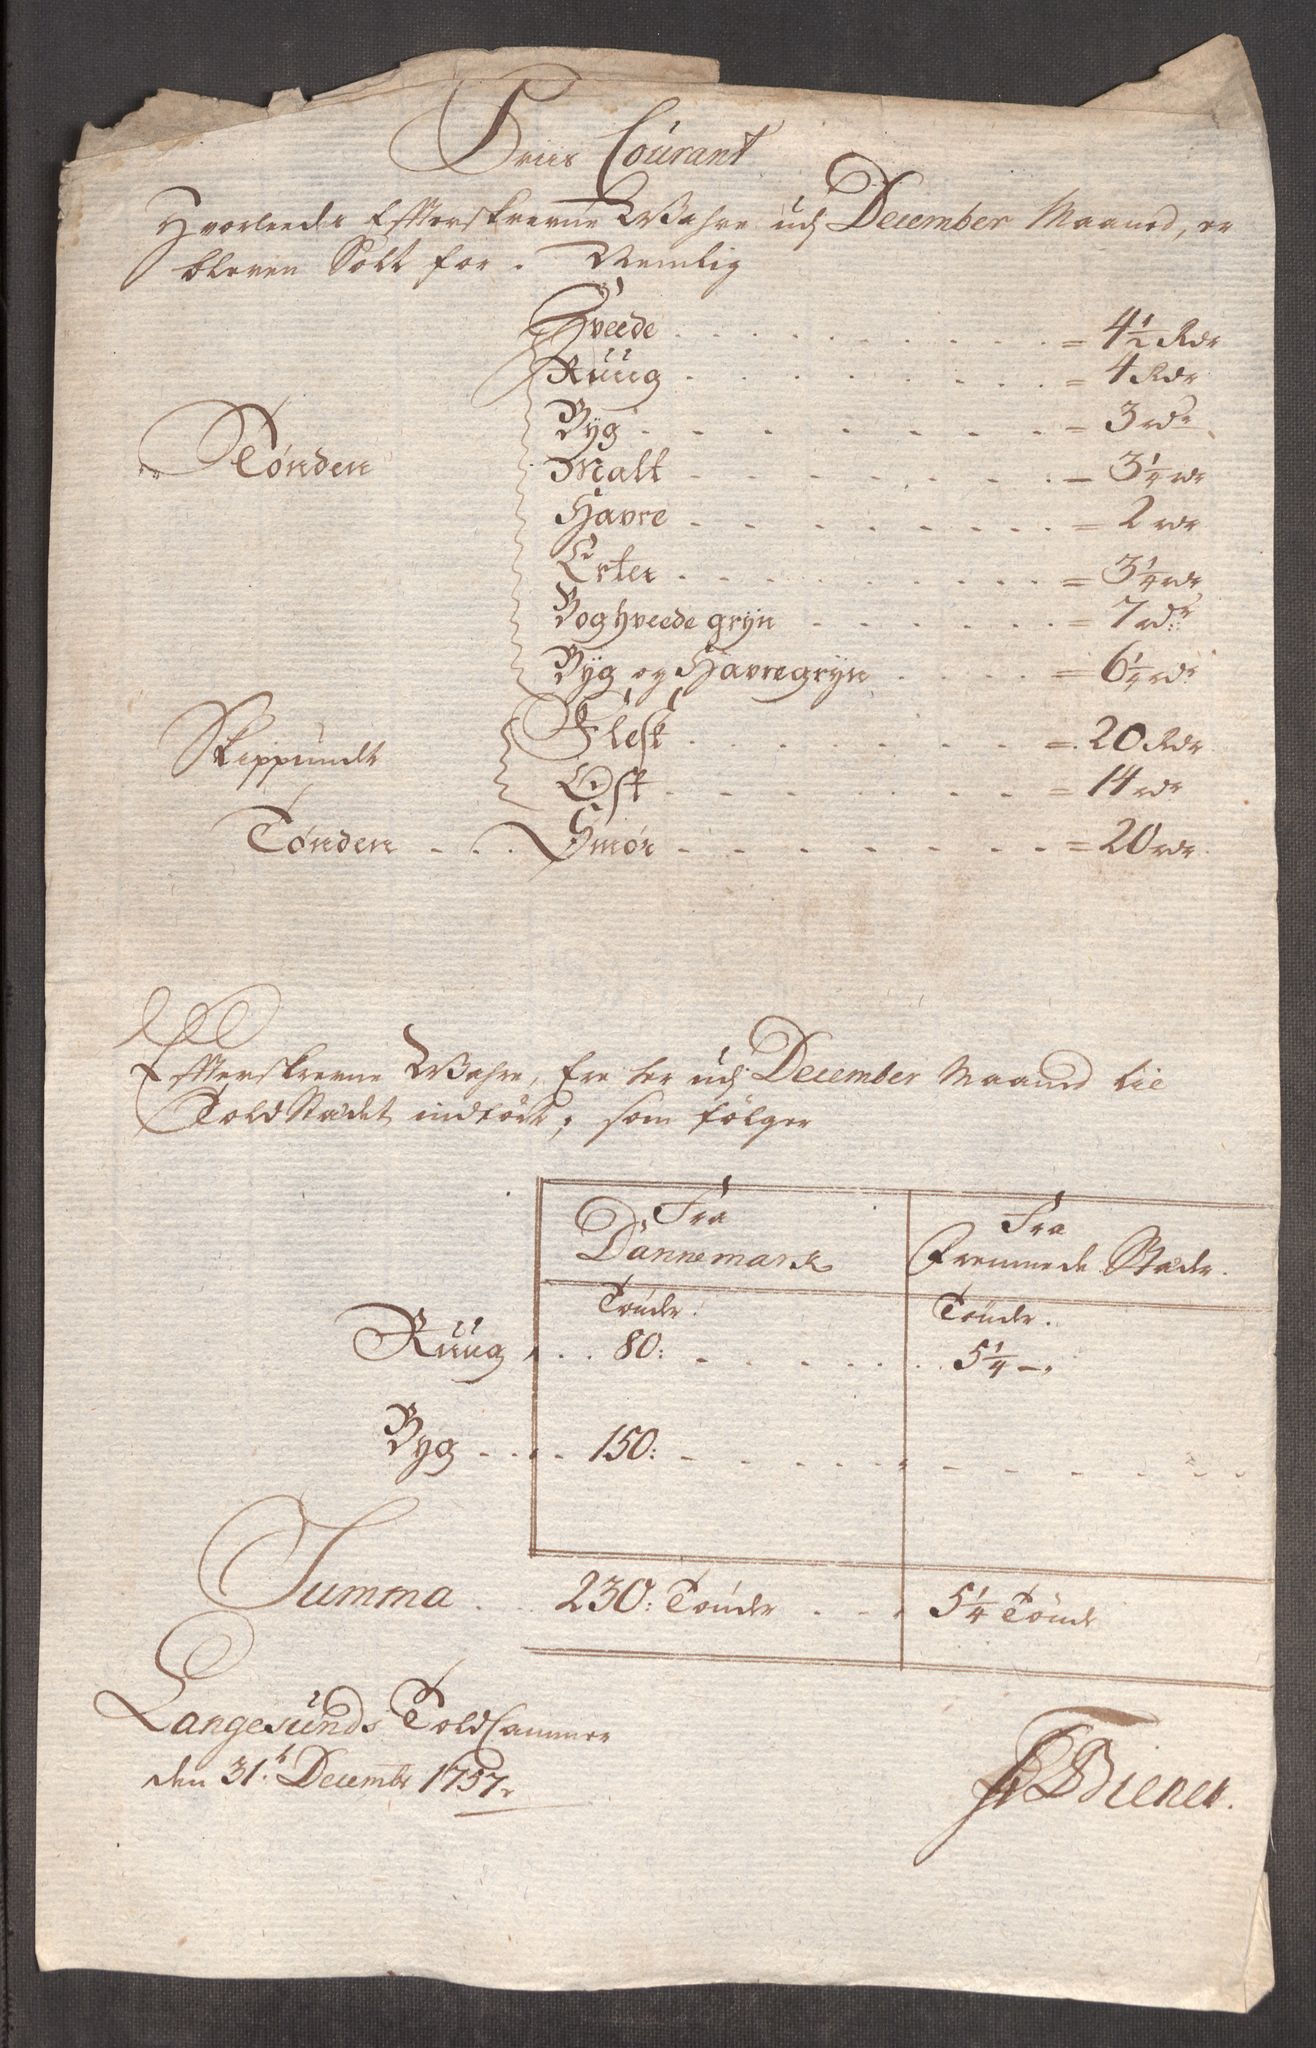 Priis Courant
Hvorleedes Efterskrevne Wahre udj December Maaned, er
bleven Solt for. Nemlig
Hveede = 4 1/2 Rdr
Ruug = 4 Rdr
Byg = 3 rdr
Tønden Malt = 3 1/4 rdr
Havre = 2 rdr
Erter = 3 1/4 rdr
Boghveede gryn = 7 rdr
Byg og Havregryn = 6 1/4 rdr
Skippundt Flesk = 20 Rdr
Ost = 14 rdr
Tønden Smør = 20 rdr
Efterskrevne Wahre, Ere her udj December Maaned til
Toldstædet indført; som følger
Fra Fra
Dannemark Fremmede Stæder.
Tønder. Tønder.
Ruug 80: 5 1/4
Byg 150:
Summa 230: Tønder 5 1/4 Tønde
Langesunds Told Cammer
den 31. Decembr 1757
Biener.